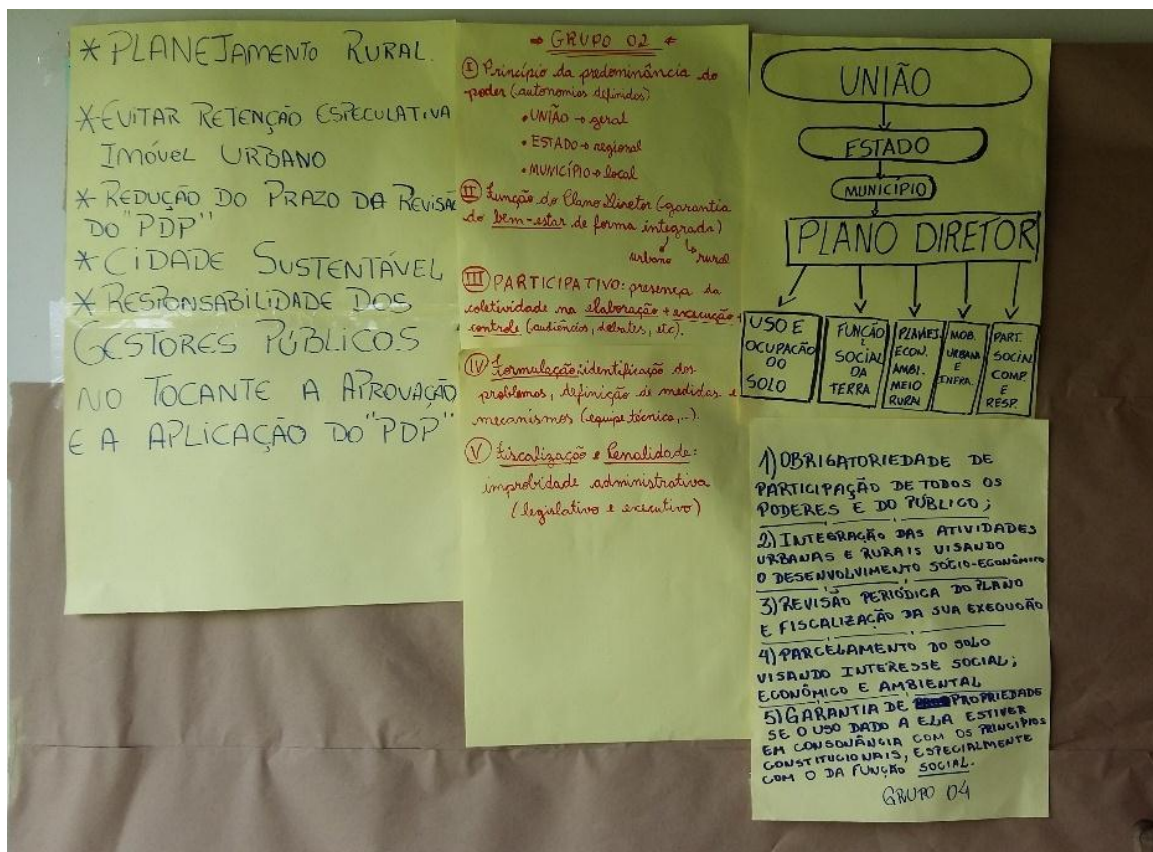 * PLANEJAMENTO RURAL.
* EVITAR RETENÇÃO ESPECULATIVA
IMÓVEL URBANO
* REDUÇÃO DO PRAZO DA REVISÃO
DO "PDP"
* CIDADE SUSTENTÁVEL
* RESPONSABILIDADE DOS
GESTORES PÚBLICOS
NO TOCANTE A APROVAÇÃO
E A APLICAÇÃO DO "PDP"
⇒ GRUPO 02 ⇐
I Princípio da predominância do
poder (autonomias definidas)
• UNIÃO → geral
• ESTADO → regional
• MUNICÍPIO → local
II Função do Plano Diretor (garantia
do bem-estar de forma integrada)
urbano rural
III PARTICIPATIVO: presença da
coletividade na elaboração + execução +
controle (audiências, debates, etc).
IV Formulação: identificação dos
problemas, definição de medidas e
mecanismos (equipe técnica,...).
V Fiscalização e Penalidade:
improbidade administrativa
(legislativo e executivo)
UNIÃO
ESTADO
MUNICÍPIO
PLANO DIRETOR
USO E
OCUPAÇÃO
DO
SOLO
FUNCÃO
SOCIAL
DA
TERRA
PLANEJ.
ECON.
AMBI.
MEIO
RURAL
MOB.
URBANA
E
INFRA.
PART.
SOCIAL
COMP.
E
RESP.
1) OBRIGATORIEDADE DE
PARTICIPAÇÃO DE TODOS OS
PODERES E DO PÚBLICO;
2) INTEGRAÇÃO DAS ATIVIDADES
URBANAS E RURAIS VISANDO
O DESENVOLVIMENTO SÓCIO-ECONÔMICO
3) REVISÃO PERIÓDICA DO PLANO
E FISCALIZAÇÃO DA SUA EXECUÇÃO
4) PARCELAMENTO DO SOLO
VISANDO INTERESSE SOCIAL;
ECONÔMICO E AMBIENTAL
5) GARANTIA DE PROPRIEDADE
SE O USO DADO A ELA ESTIVER
EM CONSONÂNCIA COM OS PRINCÍPIOS
CONSTITUCIONAIS, ESPECIALMENTE
COM O DA FUNÇÃO SOCIAL.
GRUPO 04